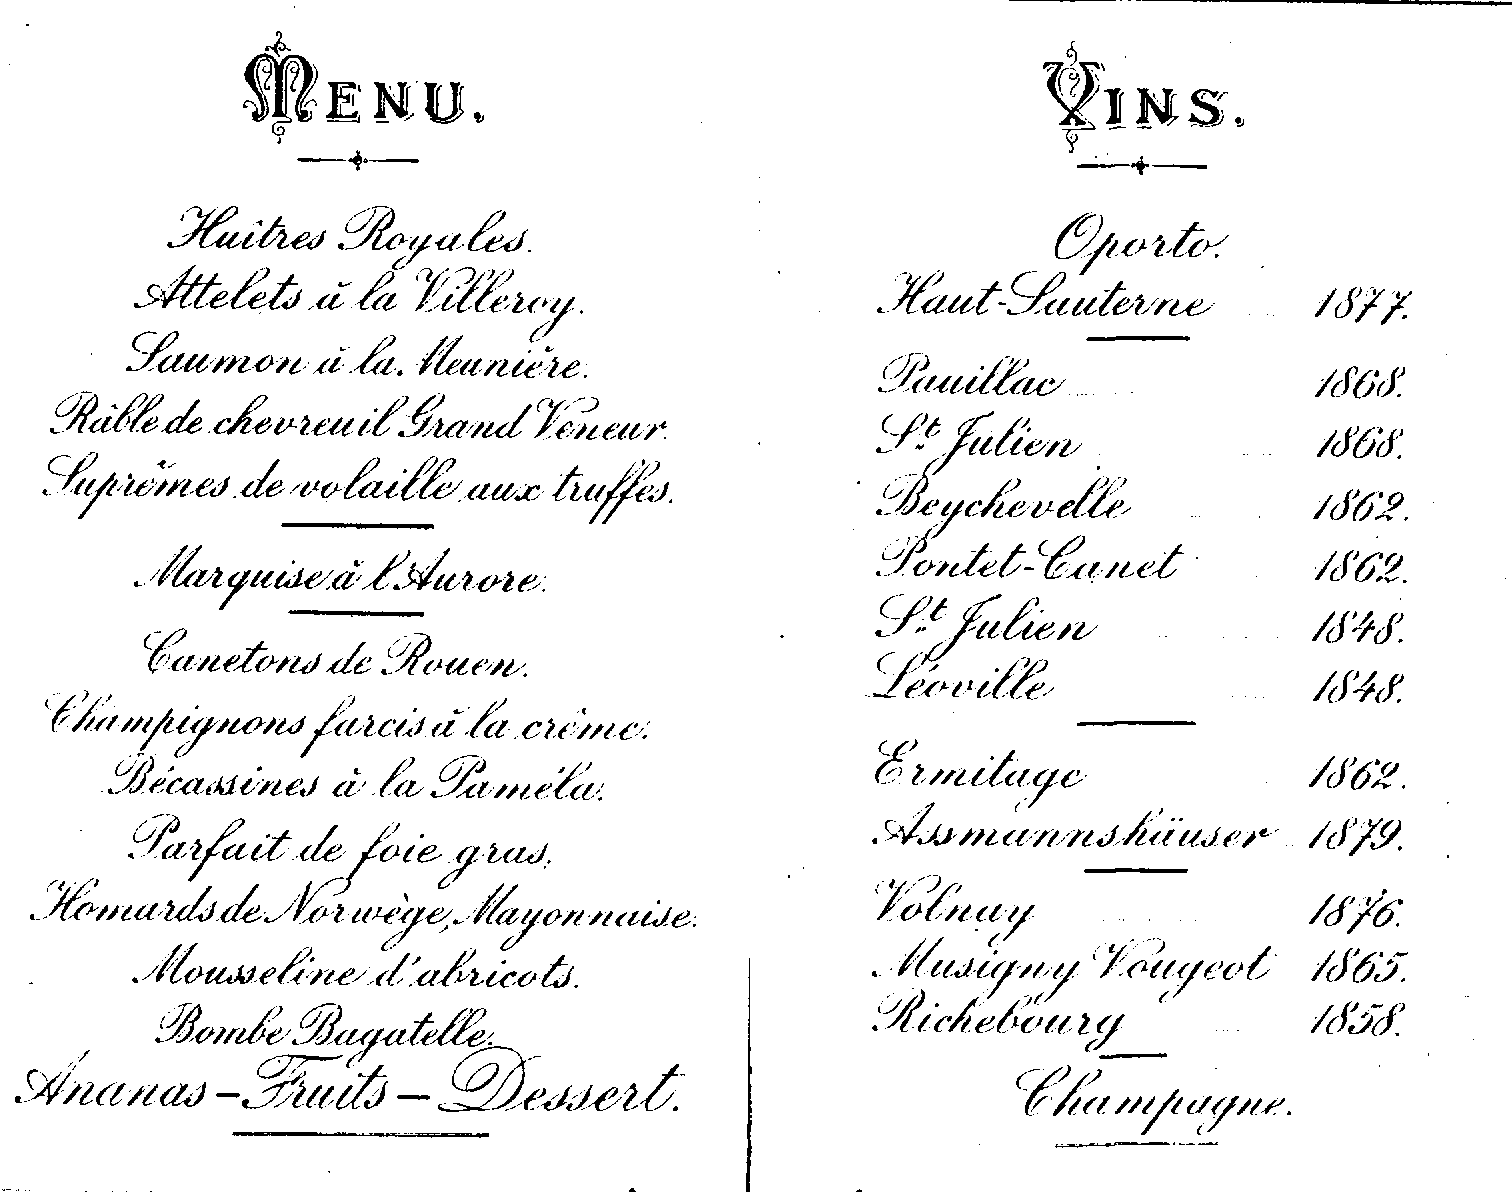 MENU.
Huîtres Royales.
Attelets à la Villeroy.
Saumon à la Meunière.
Râble de chevreuil Grand Veneur.
Suprêmes de volaille aux truffes.
Marquise à l'Aurore.
Canetons de Rouen.
Champignons farcis à la crême.
Bécassines à la Paméla.
Parfait de foie gras.
Homards de Norwège, Mayonnaise.
Mousseline d'abricots.
Bombe Bagatelle.
Ananas – Fruits – Dessert.
VINS.
Oporto.
Haut-Sauterne 1877.
Pauillac 1868.
St Julien 1868.
Beychevelle 1862.
Pontet-Canet 1862.
St Julien 1848.
Léoville 1848.
Ermitage 1862.
Assmannshäuser 1879.
Volnay 1876.
Musigny Vougeot 1865.
Richebourg 1858.
Champagne.